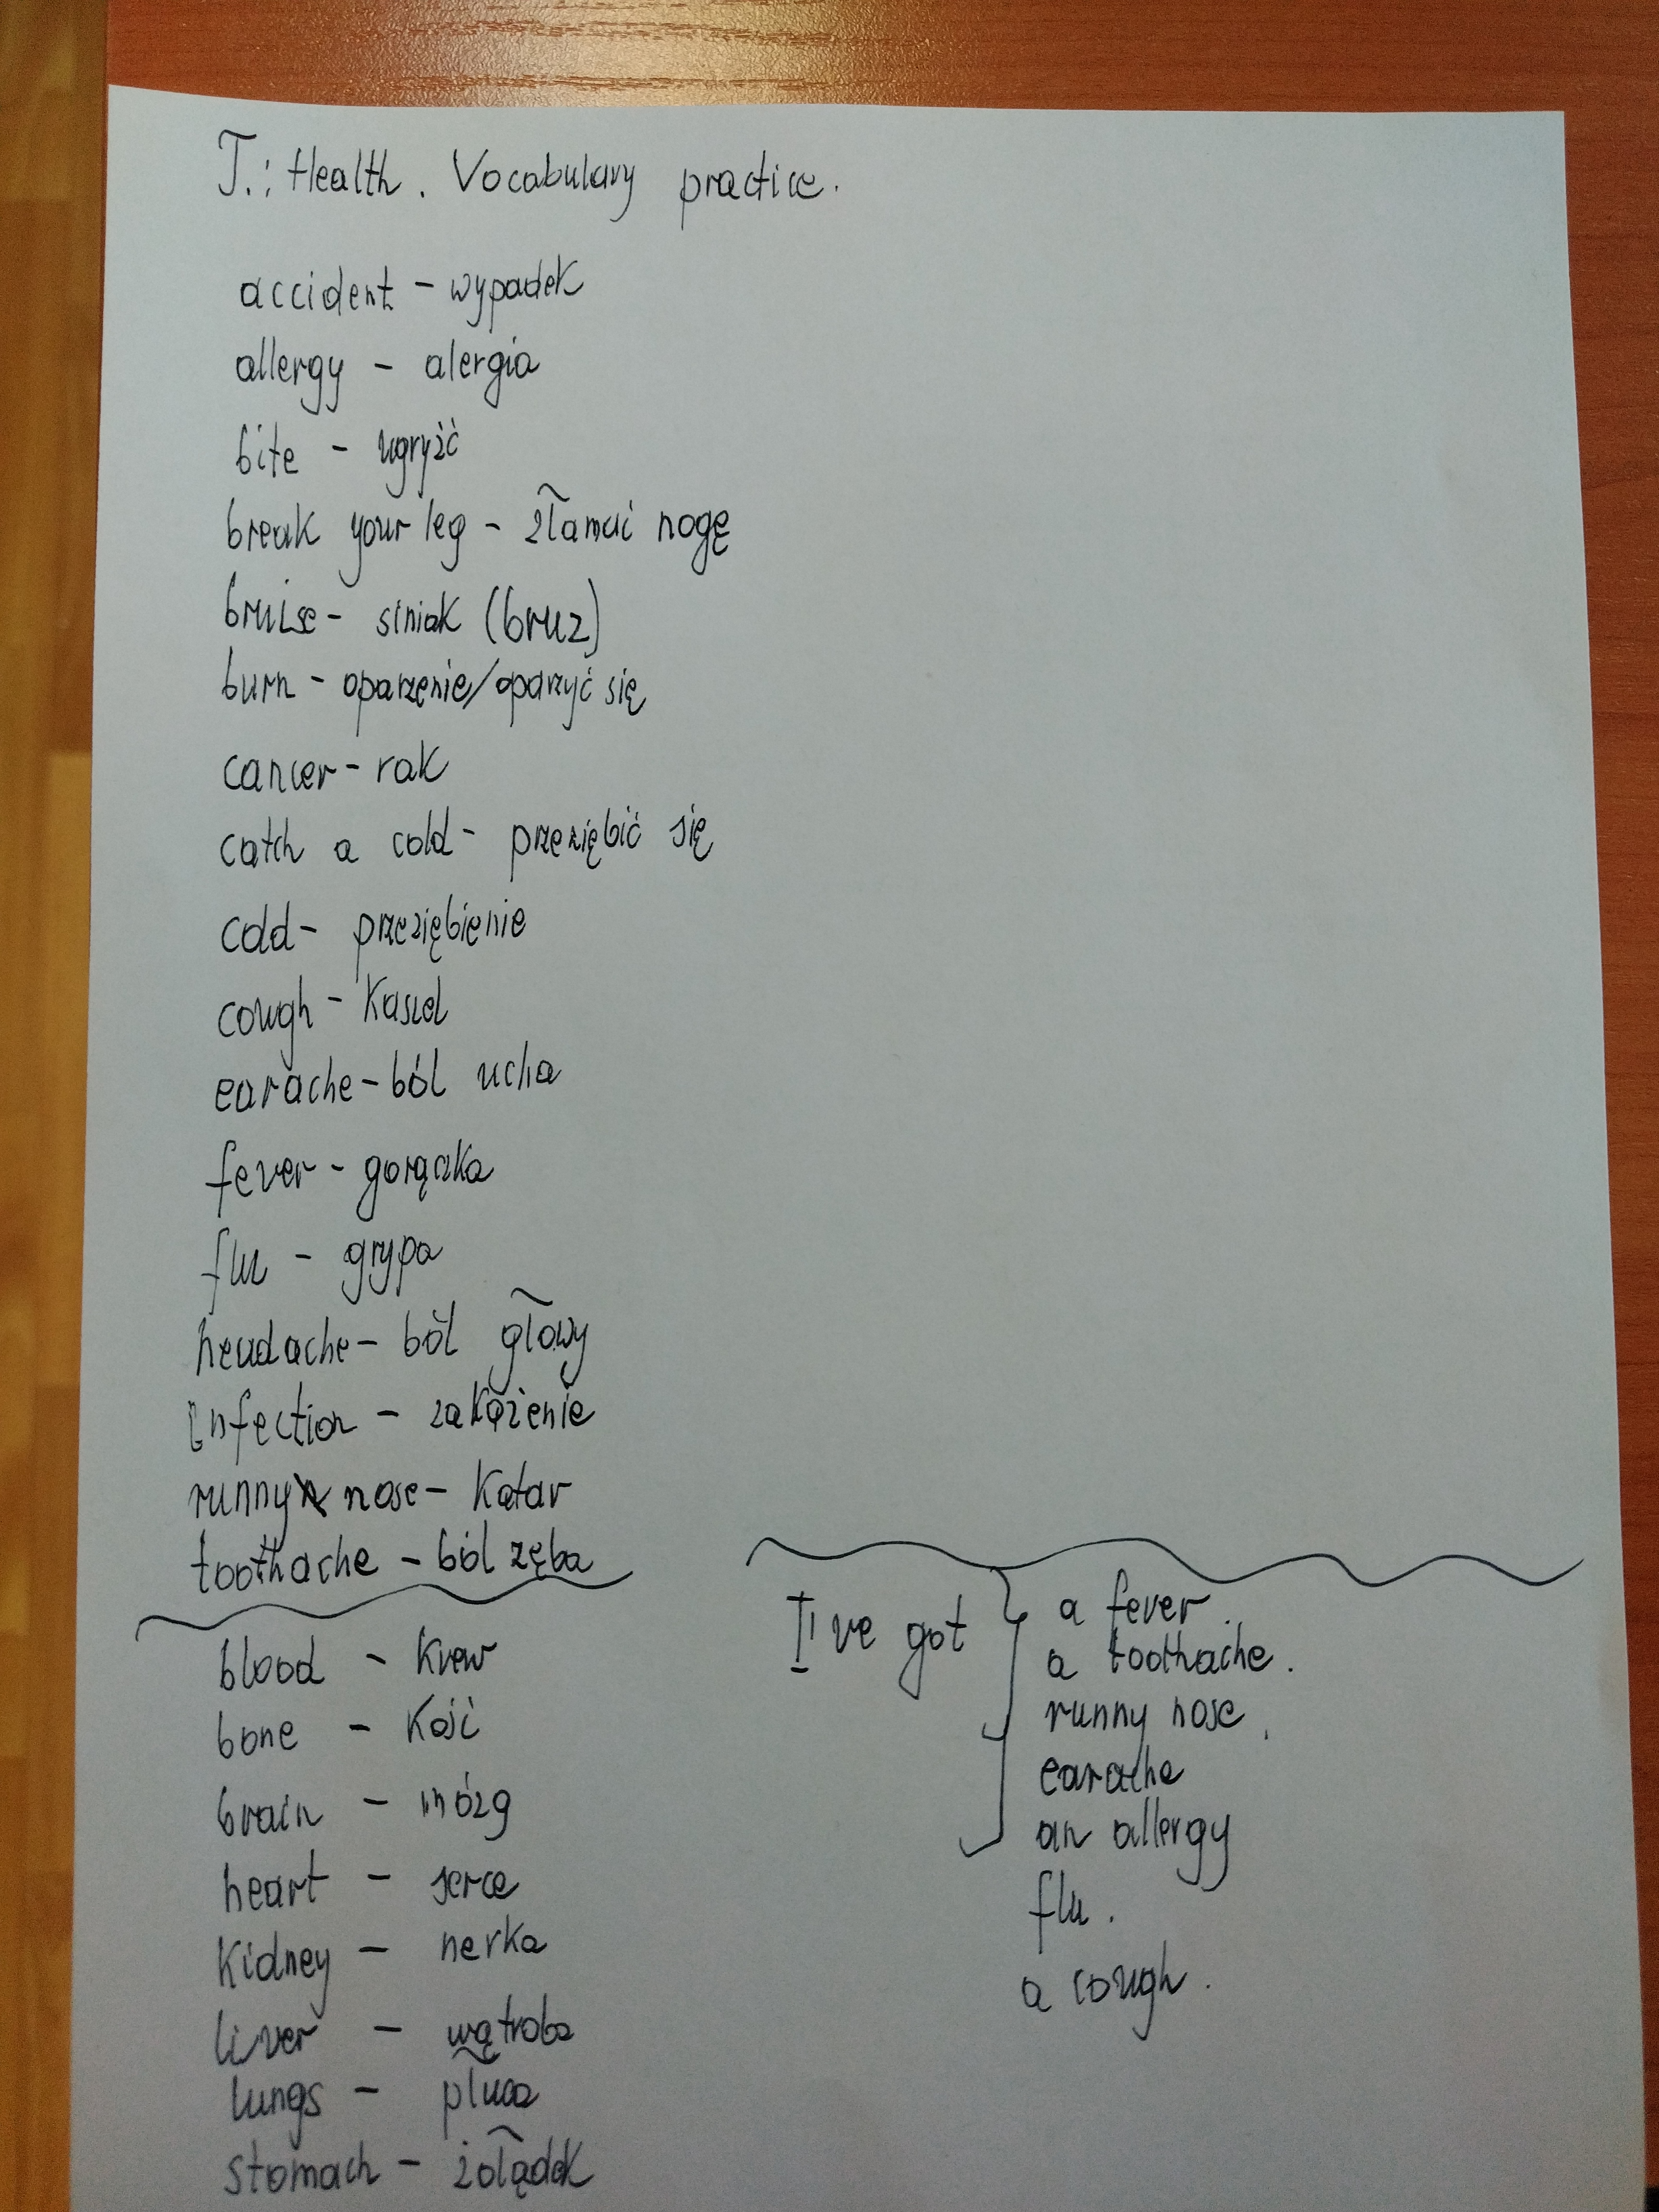 T.: Health. Vocabulary practice.
accident - wypadek
allergy - alergia
bite - ugryźć
break your leg - złamać nogę
bruise - siniak (bruz)
burn - oparzenie/oparzyć się
cancer - rak
catch a cold - przeziębić się
cold - przeziębienie
cough - kaszel
earache - ból ucha
fever - gorączka
flu - grypa
headache - ból głowy
infection - zakażenie
runny nose - katar
toothache - ból zęba
blood - krew
bone - kość
brain - mózg
heart - serce
kidney - nerka
liver - wątroba
lungs - płuca
stomach - żołądek
I've got
a fever.
a toothache.
runny nose.
earache
an allergy
flu.
a cough.